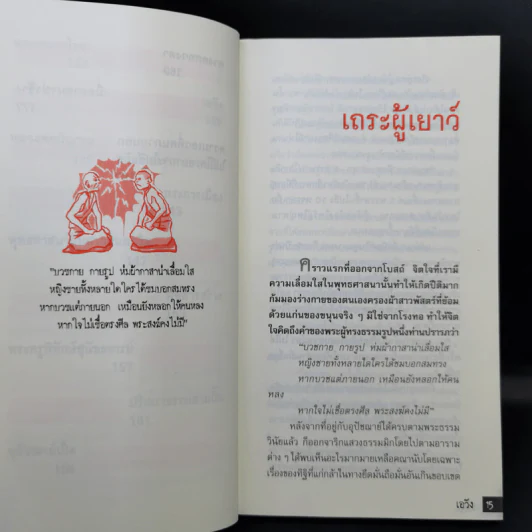 "บวชกาย กายรูป ห่มผ้ากาสาน่าเลื่อมใส
หญิงชายทั้งหลายใดใครได้ชมบอกสมทรง
หากบวชแต่ภายนอก เหมือนยังหลอกให้คนหลง
หากใจไม่เชื่อตรงศีล พระสงฆ์คงไม่มี"
เถระผู้เยาว์
คราวแรกที่ออกจากโบสถ์ จิตใจที่เรามี
ความเลื่อมใสในพุทธศาสนานั้นทำให้เกิดปีติมาก
ก้มมองร่างกายของตนเองครองผ้าสาวพัสตร์ที่ย้อม
ด้วยแก่นของขนุนจริง ๆ มิใช่จากโรงทอ ทำให้จิต
ใจคิดถึงคำของพระผู้ทรงธรรมรูปหนึ่งท่านปรารภว่า
"บวชกาย กายรูป ห่มผ้ากาสาน่าเลื่อมใส
หญิงชายทั้งหลายใดใครได้ชมบอกสมทรง
หากบวชแต่ภายนอก เหมือนยังหลอกให้คน
หลง
หากใจไม่เชื่อตรงศีล พระสงฆ์คงไม่มี"
หลังจากที่อยู่กับอุปัชฌาย์ได้ครบตามพระธรรม
วินัยแล้ว ก็ออกจาริกแสวงธรรมมิกโดยไปตามอาราม
ต่าง ๆ ได้พบเห็นอะไรมากมายเหลือคณานับโดยเฉพาะ
เรื่องของทิฐิที่แก่กล้าในทางยึดมั่นถือมั่นอันเกินขอบเขต
เอวัง 15